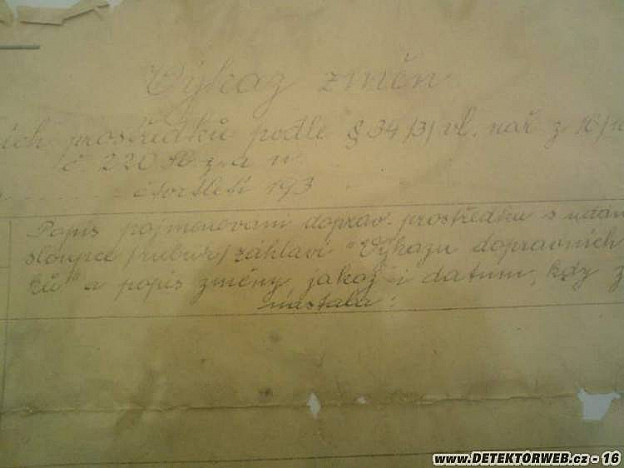 Výkaz změn
ích prostředků podle § 34 /3/ vl. nař z 16/
č 220 Sb z. a n
čtvrtletí 193
Popis pojmenování doprav. prostředku s udán
sloupce /rubriky/ záhlaví "Výkazu dopravních
ků" a popis změny, jakož i datum, kdy z
nastala:
www.DETEKTORWEB.cz - 16